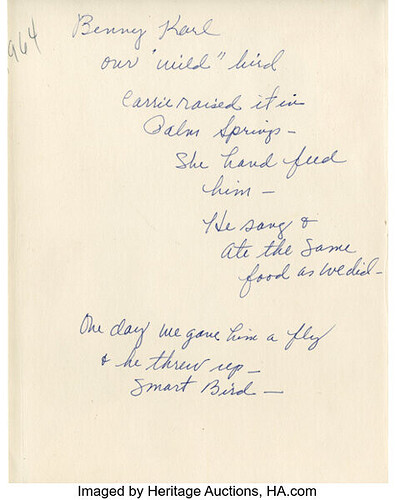 1964
Benny Karl
our "wild" bird
Carrie raised it in
Palm Springs –
She hand feed
him –
He sang &
ate the same
food as we did –
One day we gave him a fly
& he threw up –
Smart Bird –
Imaged by Heritage Auctions, HA.com